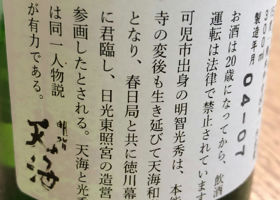 お酒は20歳になってから、飲酒
運転は法律で禁止されています
製造年月 04-07
可児市出身の明智光秀は、本能
寺の変後も生き延びて天海和
となり、春日局と共に徳川幕
に君臨し、日光東照宮の造営
参画したとされる。天海と光
は同一人物説
が有力である。
明智
天海